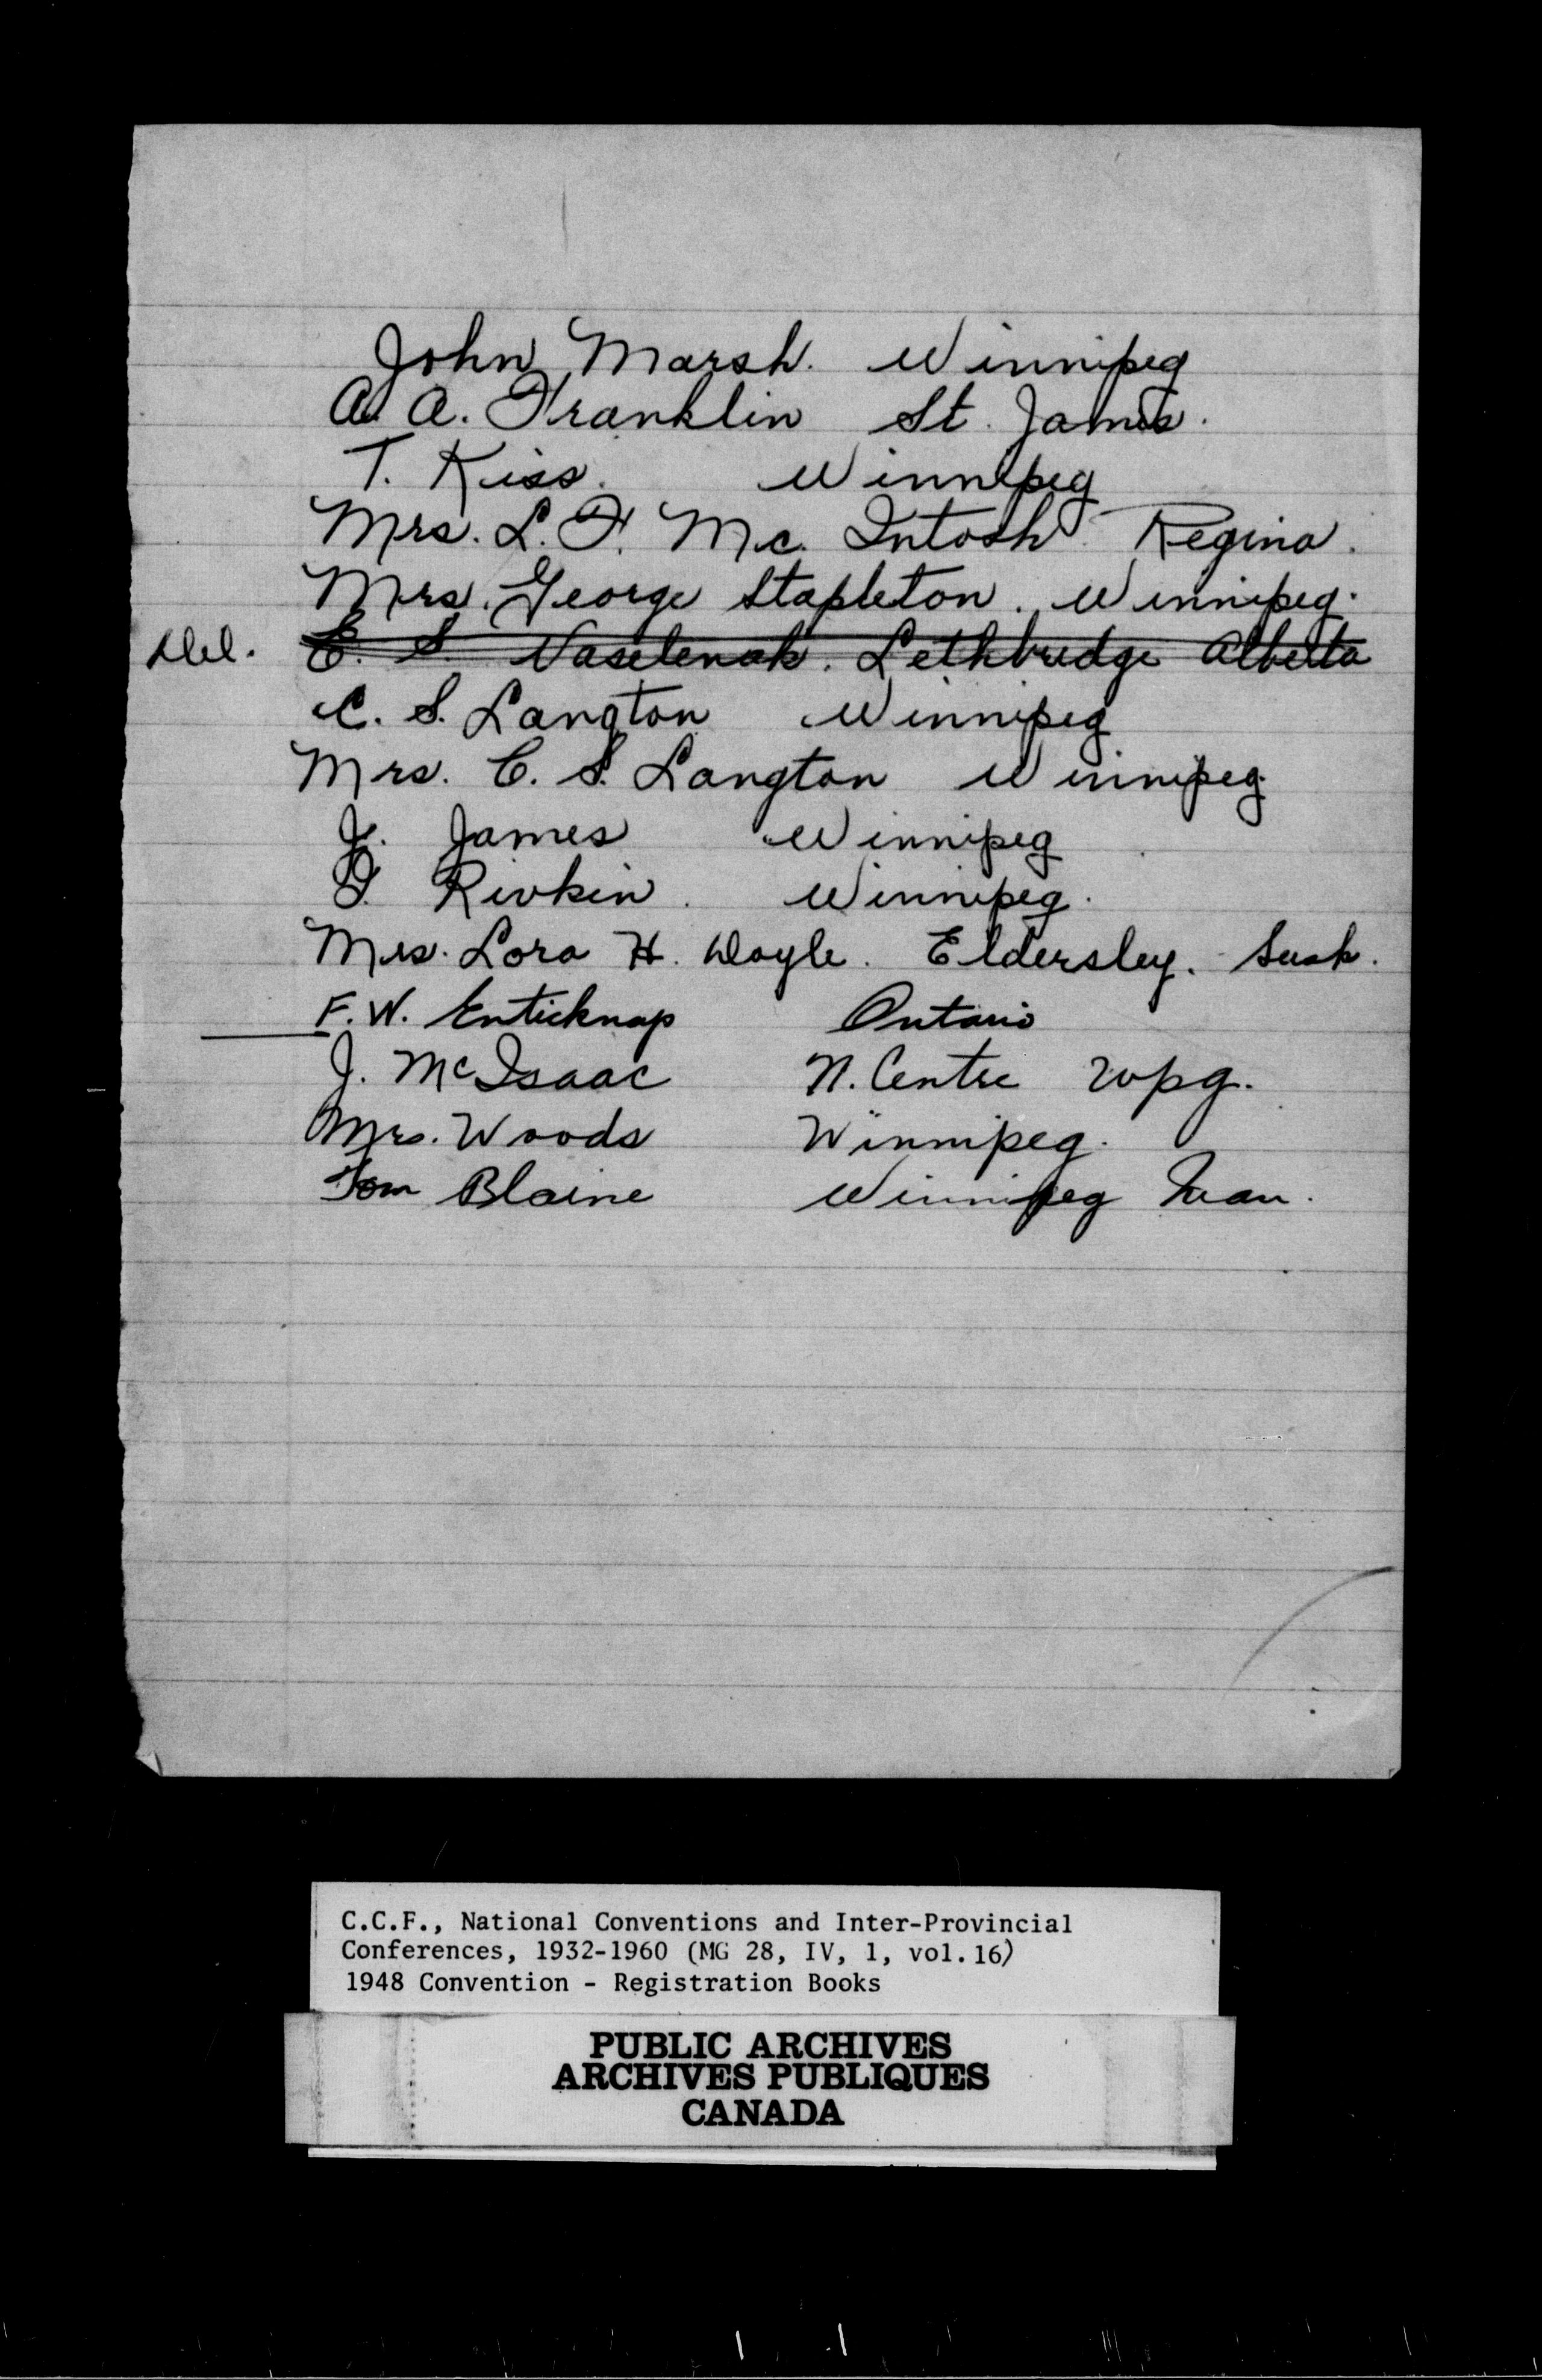 John Marsh. Winnipeg
A. A. Franklin St. James.
T. Kiss. Winnipeg
Mrs. L. F. Mc. Intosh Regina.
Mrs. George Stapleton. Winnipeg.
Del. E. S. Vaselenak. Lethbridge Alberta
C. S. Langton Winnipeg
Mrs. C. S. Langton Winnipeg
J. James Winnipeg
I. Rivkin. Winnipeg.
Mrs. Lora H. Doyle. Eldersley. Sask.
F. W. Enticknap Ontario
J. McIsaac N. Centre Wpg.
Mrs. Woods Winnipeg.
Tom Blaine Winnipeg Man.
C.C.F., National Conventions and Inter-Provincial
Conferences, 1932-1960 (MG 28, IV, 1, vol. 16)
1948 Convention - Registration Books
PUBLIC ARCHIVES
ARCHIVES PUBLIQUES
CANADA